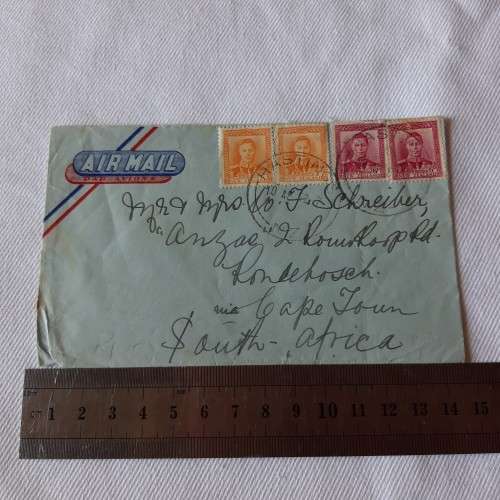 AIR MAIL
PAR AVION
HASTINGS
Mr & Mrs W. F. Schreiber,
Anzac & Romskoop Rd.
Rondebosch.
via Cape Town
South-Africa
cm 1 2 3 4 5 6 7 8 9 10 11 12 13 14 15